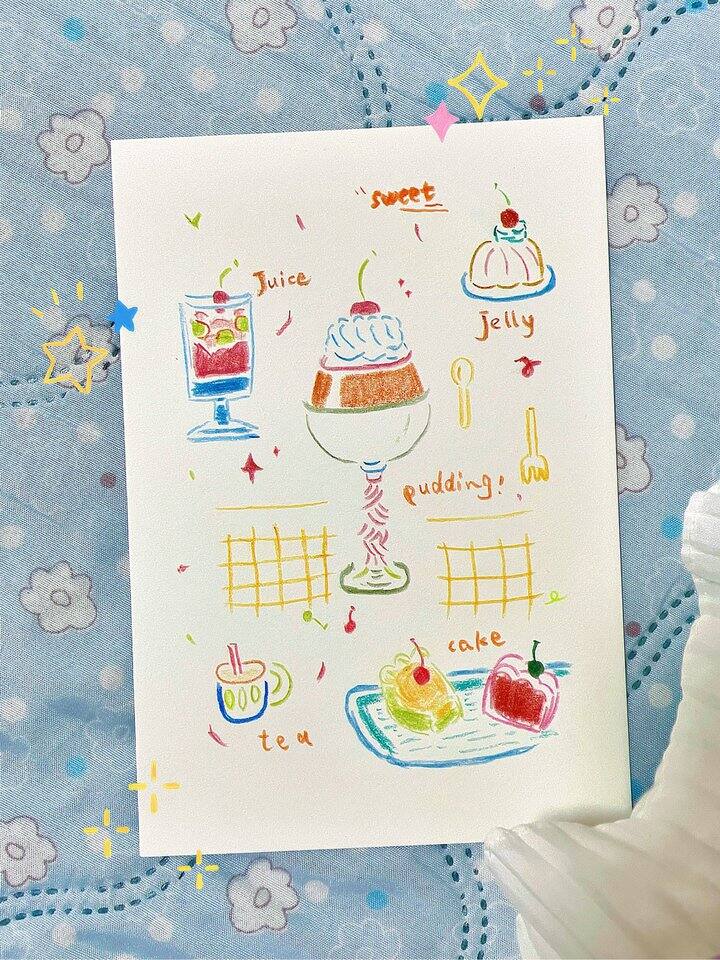 "sweet
Juice
Jelly
pudding!
cake
tea